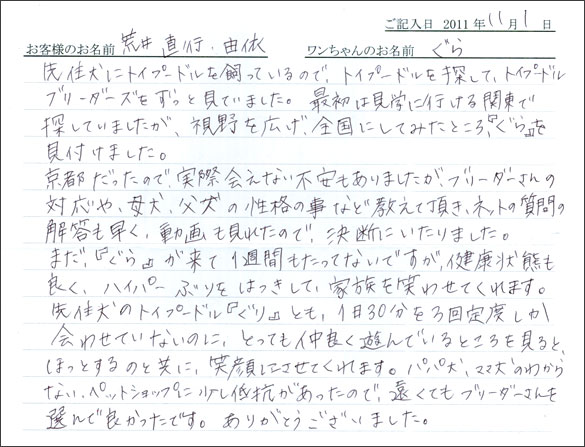 ご記入日 2011年11月1日
お客様のお名前 荒井 直行・由依 ワンちゃんのお名前 ぐら
先住犬にトイプードルを飼っているので、トイプードルを探して、トイプードル
ブリーダーズをずっと見ていました。最初は見学に行ける関東で
探していましたが、視野を広げ、全国にしてみたところ、『ぐら』を
見付けました。
京都だったので、実際会えない不安もありましたが、ブリーダーさんの
対応や、母犬、父犬の性格の事など教えて頂き、ネットの質問の
解答も早く、動画も見れたので、決断にいたりました。
まだ、『ぐら』が来て1週間もたってないですが、健康状態も
良く、ハイパーぶりをはっきして、家族を笑わせてくれます。
先住犬のトイプードル『ぐり』とも、1日30分を3回定度しか
会わせていないのに、とっても仲良く遊んでいるところを見ると、
ほっとするのと共に、笑顔にさせてくれます。パパ犬、ママ犬のわから
ない、ペットショップに少し低抗があったので、遠くてもブリーダーさんを
選んで良かったです。ありがとうございました。